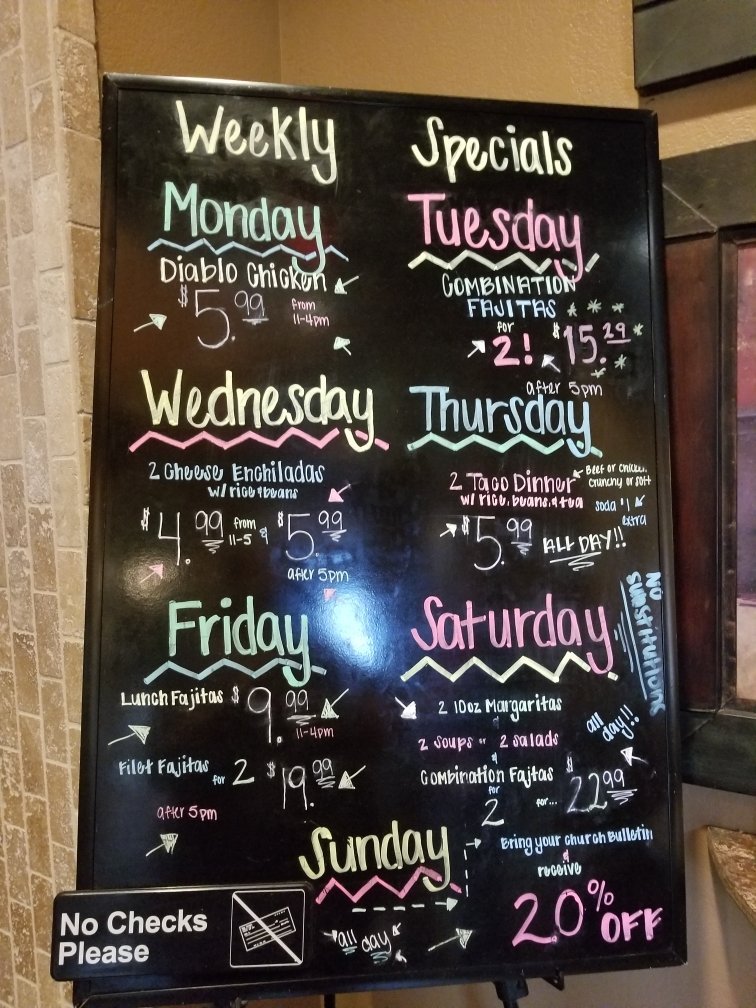 Weekly Specials
Monday
Diablo Chicken
$5.99 from
11-4pm
Tuesday
COMBINATION
FAJITAS
for
2! $15.29
after 5pm
Wednesday
2 Cheese Enchiladas
w/ rice & beans
$4.99 from
11-5 & $5.99
after 5pm
Thursday
2 Taco Dinner
w/ rice, beans, & tea
Beef or chicken,
crunchy or soft
soda $1
extra
$5.99 ALL DAY!!
NO
SUBSTITUTIONS
Friday
Lunch Fajitas $9.99
11-4pm
Filet Fajitas for 2 $19.99
after 5pm
Saturday
2 10oz Margaritas
&
2 soups or 2 salads
&
Combination Fajtas
for
2 for... $22.99
all
day!!
Sunday
all day
Bring your church Bulletin
&
receive
20% OFF
No Checks
Please